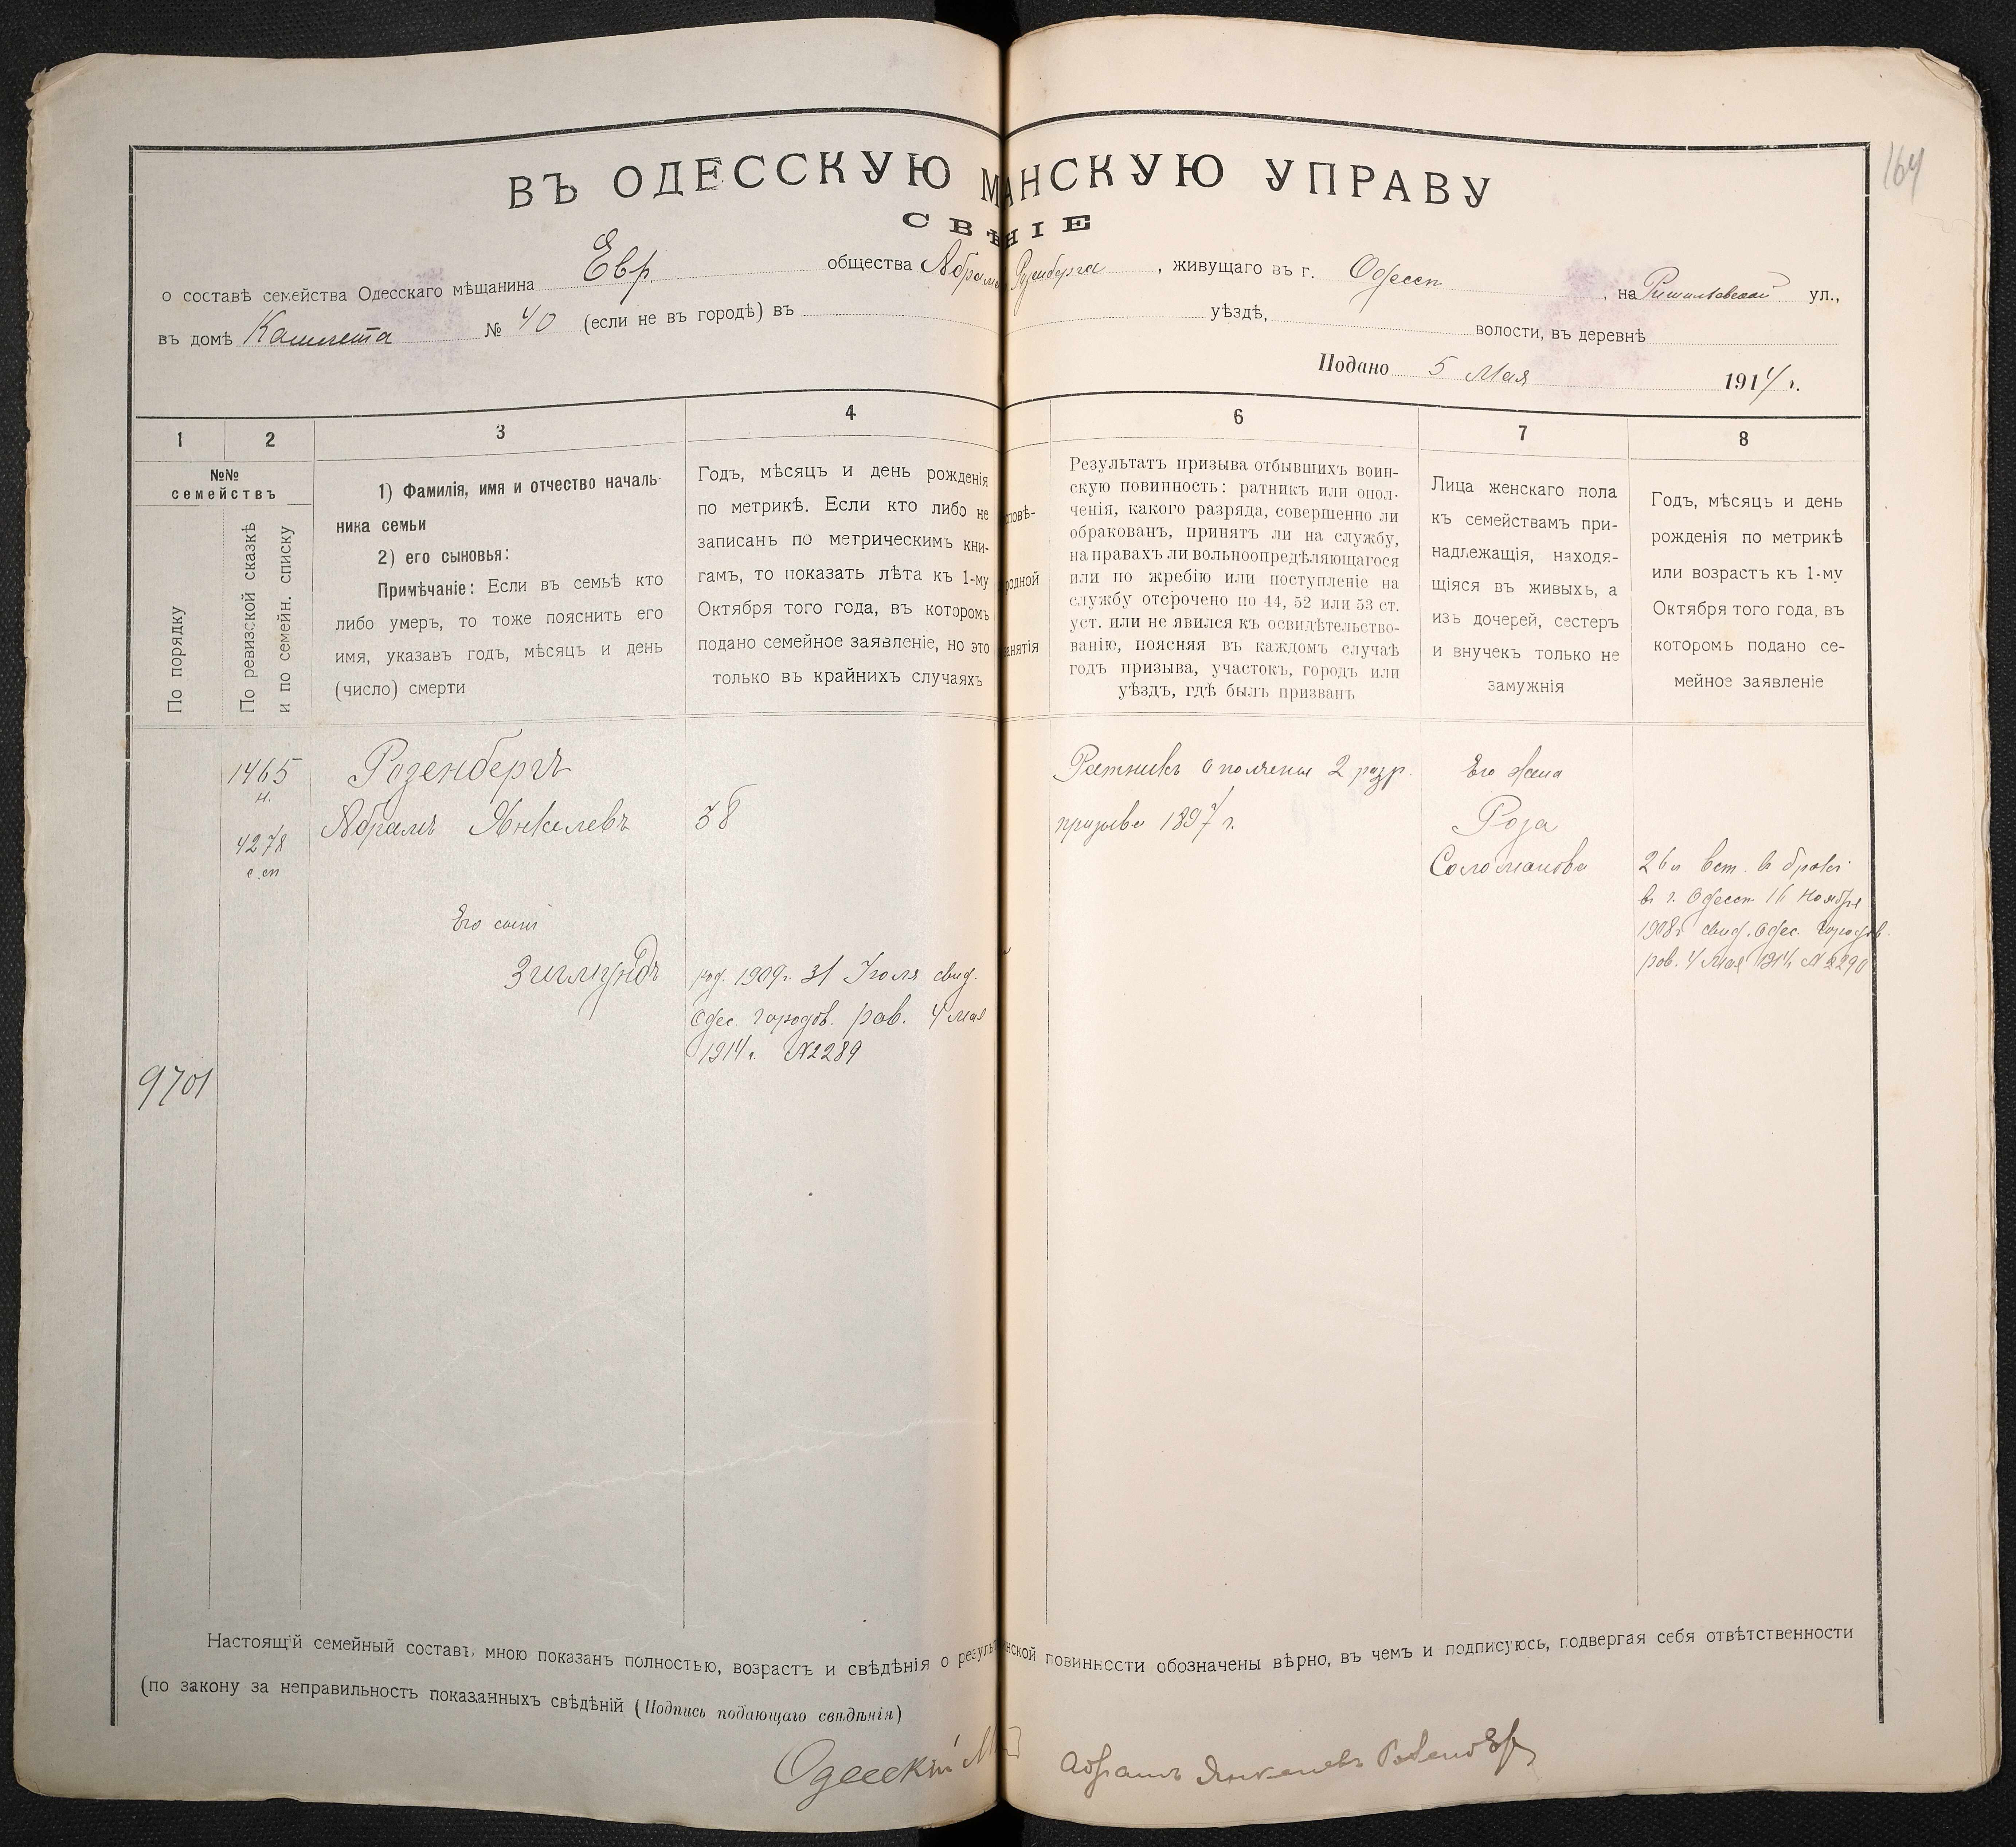 164
ВЪ ОДЕССКУЮ М АНСКУЮ УПРАВУ
СВѢ НІЕ
о составѣ семейства Одесскаго мѣщанина Евр. общества Абрама Розенберга, живущаго въ г. Одессѣ, на Ришельевской ул.,
въ домѣ № 40 (если не въ городѣ) въ уѣздѣ, волости, въ деревнѣ
Подано 5 Мая 1914 г.
1 2 3 4 6 7 8
№№
семействъ
По порядку
По ревизской сказкѣ
и по семейн. списку
1) Фамилія, имя и отчество началь-
ника семьи
2) его сыновья:
Примѣчаніе: Если въ семьѣ кто
либо умеръ, то тоже пояснить его
имя, указавъ годъ, мѣсяцъ и день
(число) смерти
Годъ, мѣсяцъ и день рожденія
по метрикѣ. Если кто либо не
записанъ по метрическимъ кни-
гамъ, то показать лѣта къ 1-му
Октября того года, въ которомъ
подано семейное заявленіе, но это
только въ крайнихъ случаяхъ
повѣ-
родной
анятія
Результатъ призыва отбывшихъ воин-
скую повинность: ратникъ или опол-
ченія, какого разряда, совершенно ли
обракованъ, принятъ ли на службу,
на правахъ ли вольноопредѣляющагося
или по жребію или поступленіе на
службу отсрочено по 44, 52 или 53 ст.
уст. или не явился къ освидѣтельство-
ванію, поясняя въ каждомъ случаѣ
годъ призыва, участокъ, городъ или
уѣздъ, гдѣ былъ призванъ
Лица женскаго пола
къ семействамъ при-
надлежащія, находя-
щіяся въ живыхъ, а
изъ дочерей, сестеръ
и внучекъ только не
замужнія
Годъ, мѣсяцъ и день
рожденія по метрикѣ
или возрастъ къ 1-му
Октября того года, въ
которомъ подано се-
мейное заявленіе
1465
н.
4278
с. сп
Розенбергъ
Абрамъ Янкелевъ
38
Ратникъ ополченія 2 разр.
призыва 1897 г.
Его жена
Роза
Соломонова
26 л вст. въ бракъ
въ г. Одессѣ 16 Ноября
1908 г свид. Одес. городов.
рав. 4 Мая 1914 г. № 2290
Его сынъ
Зигмундъ
род. 1909 г. 31 Іюля свид.
Одес. городов. рав. 4 Мая
1914 г. №2289
9701
Настоящій семейный составъ, мною показанъ полностью, возрастъ и свѣдѣнія о резуль инской повинности обозначены вѣрно, въ чемъ и подписуюсь, подвергая себя отвѣтственности
(по закону за неправильность показанныхъ свѣдѣній (Подпись подающаго свѣдѣнія)
Одесскій Абрамъ Янкелевъ Розенберг